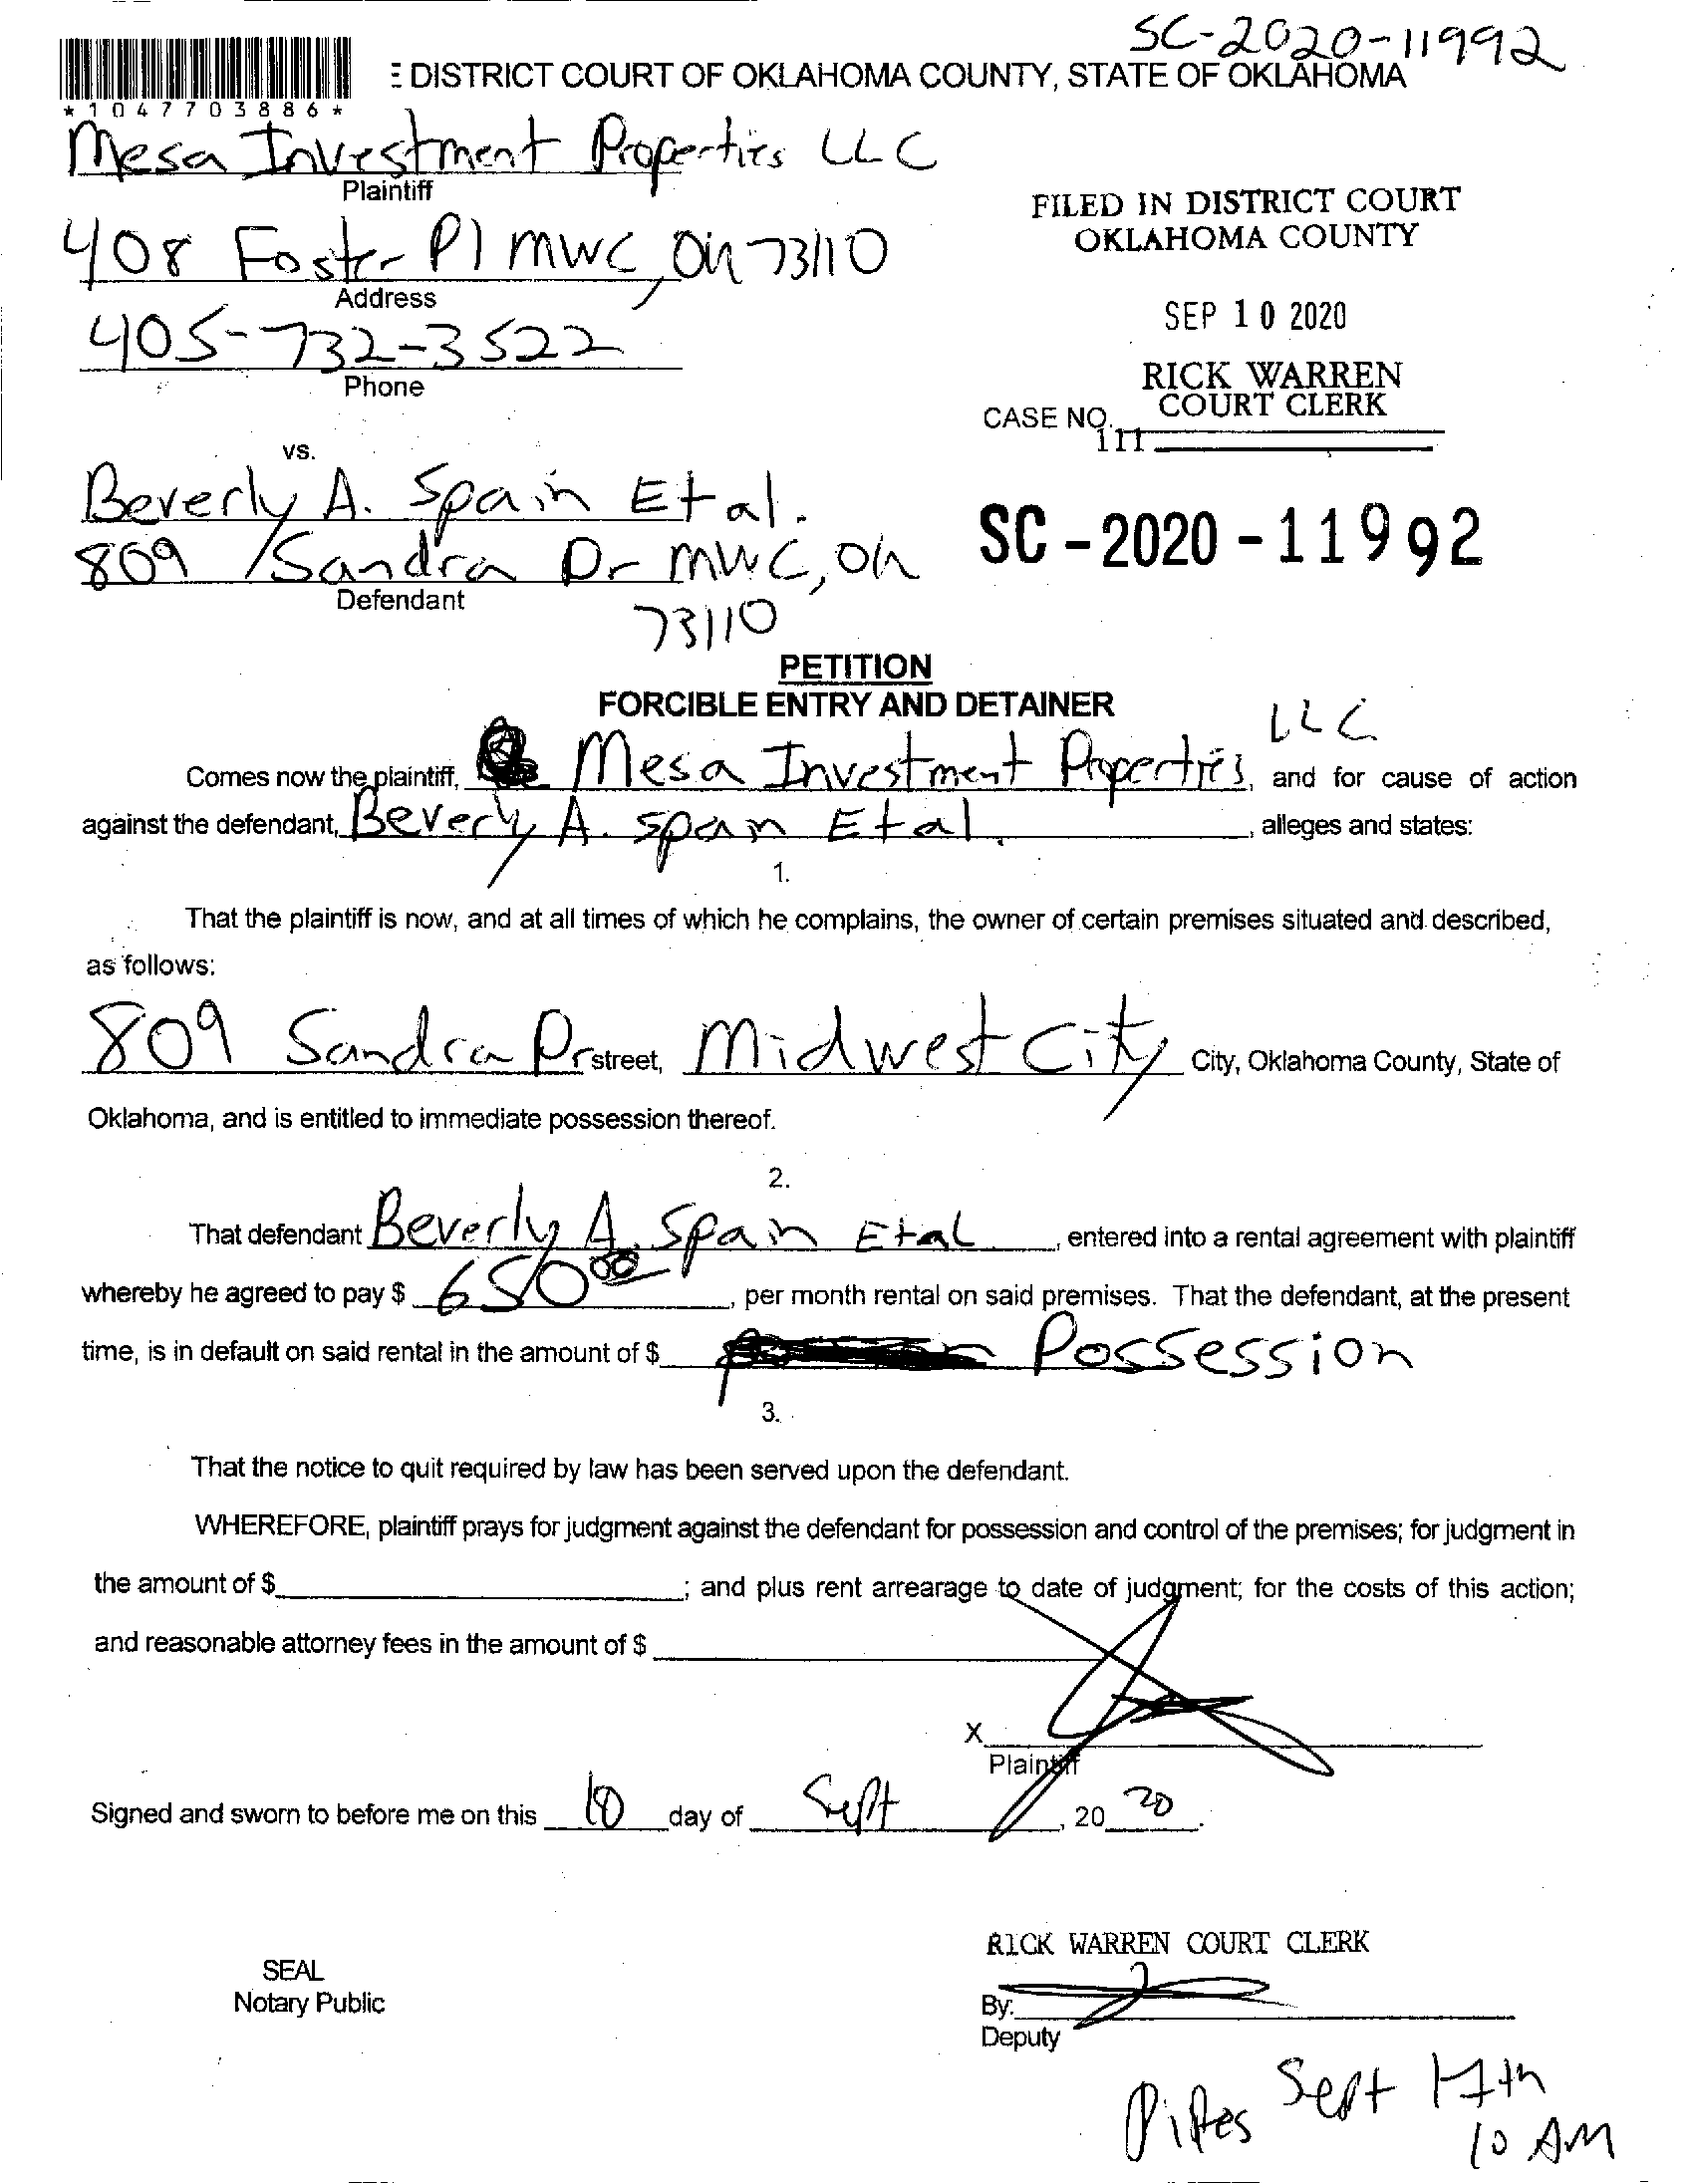 SC-2020-11992
DISTRICT COURT OF OKLAHOMA COUNTY, STATE OF OKLAHOMA
*1047703886*
Mesa Investment Properties LLC
Plaintiff
408 Foster Pl MWC, Ok 73110
Address
405-732-3522
Phone
FILED IN DISTRICT COURT
OKLAHOMA COUNTY
SEP 10 2020
RICK WARREN
COURT CLERK
CASE NO.
111
vs.
Beverly A. Spain Et al.
809 Sandra Dr MWC, Ok
Defendant
73110
SC-2020-11992
PETITION
FORCIBLE ENTRY AND DETAINER
Comes now the plaintiff, Mesa Investment Properties LLC, and for cause of action
against the defendant, Beverly A. Spain Et al, alleges and states:
1.
That the plaintiff is now, and at all times of which he complains, the owner of certain premises situated and described,
as follows:
809 Sandra Dr street, Midwest City City, Oklahoma County, State of
Oklahoma, and is entitled to immediate possession thereof.
2.
That defendant Beverly A. Spain Et al, entered into a rental agreement with plaintiff
whereby he agreed to pay $ 650 00, per month rental on said premises. That the defendant, at the present
time, is in default on said rental in the amount of $ Possession
3.
That the notice to quit required by law has been served upon the defendant.
WHEREFORE, plaintiff prays for judgment against the defendant for possession and control of the premises; for judgment in
the amount of $ ; and plus rent arrearage to date of judgment; for the costs of this action;
and reasonable attorney fees in the amount of $
X
Plaintiff
Signed and sworn to before me on this 10 day of Sept, 20 20.
RICK WARREN COURT CLERK
SEAL
Notary Public
By:
Deputy
Sept 17th
10 AM